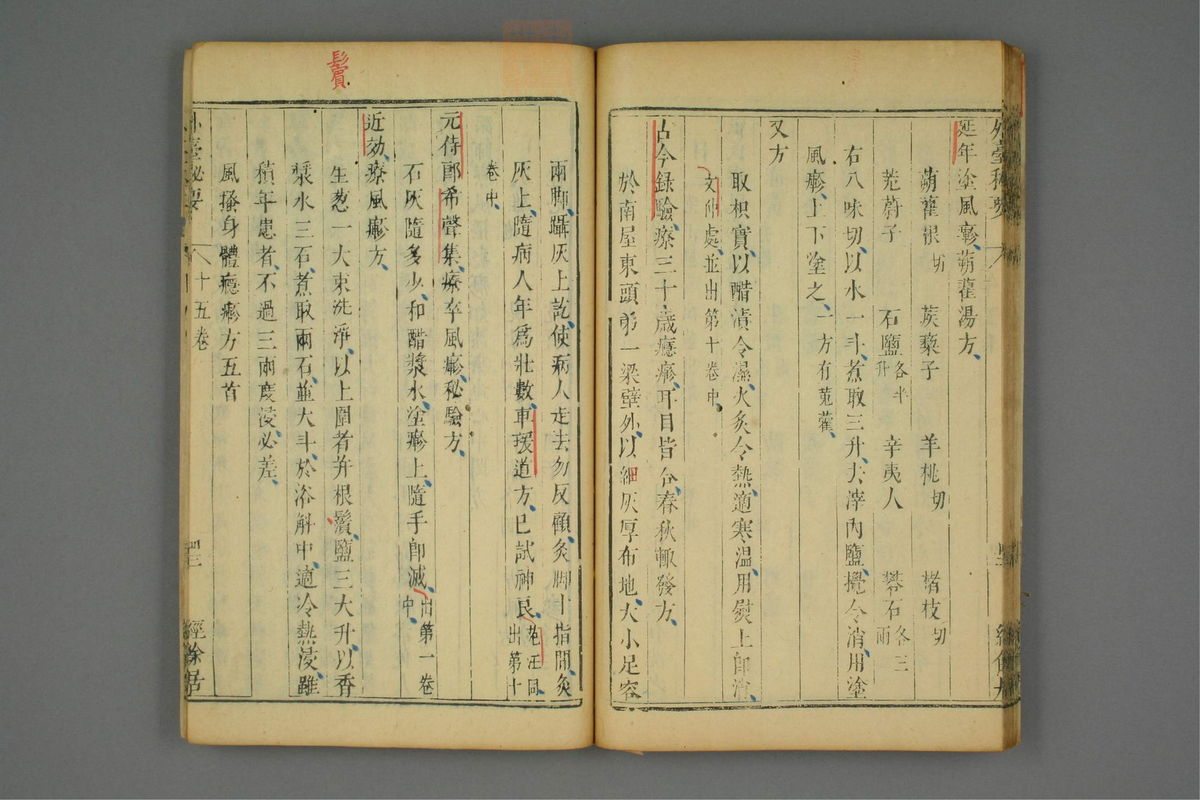 延年塗風癮蒴藋湯方
蒴藋根切 蒺藜子 羊桃切 楮枝切
茺蔚子 石鹽各半升 辛夷人 礬石各三兩
右八味切以水一斗煮取三升去滓內鹽攪令消用塗
風癮上下塗之一方有菟藿
又方
取枳實以醋漬令濕火炙令熱適寒溫用熨上卽消
文仲處並出第十卷中
古今錄驗療三十歲癮疹耳目皆合春秋輒發方
於南屋東頭第一梁壁外以細灰厚布地大小足容
細
兩脚躡灰上訖使病人走去勿反顧灸脚十指間灸
灰上隨病人年爲壯數車瑗道方已試神良范汪同出第十
卷中
元侍郎希聲集療卒風疹秘驗方
石灰隨多少和醋漿水塗疹上隨手卽滅出第一卷中
近効療風疹方
生葱一大束洗淨以上圍者幷根鬚鹽三大升以香
漿水三石煮取兩石並大斗於浴斛中適冷熱浸雖
積年患者不過三兩度浸必差
風搔身體癮疹方五首
外臺秘要 十五卷 四三 經餘居
鬚